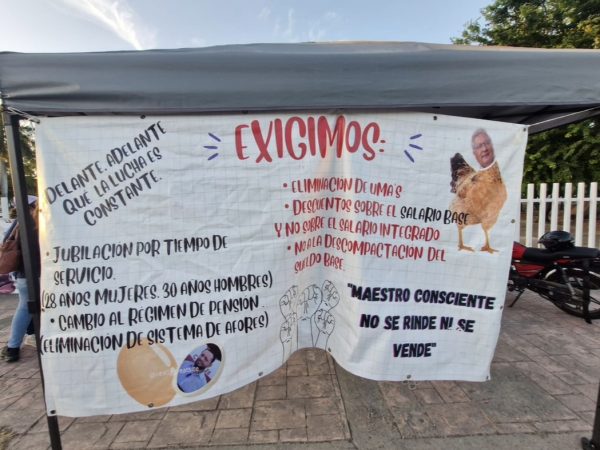 DELANTE, ADELANTE
QUE LA LUCHA ES
CONSTANTE.
EXIGIMOS:
• JUBILACION POR TIEMPO DE
SERVICIO.
(28 AÑOS MUJERES. 30 AÑOS HOMBRES)
• CAMBIO AL REGIMEN DE PENSION.
(ELIMINACIÓN DE SISTEMA DE AFORES)
• ELIMINACION DE UMA'S
• DESCUENTOS SOBRE EL SALARIO BASE
Y NO SOBRE EL SALARIO INTEGRADO
• NO A LA DESCOMPACTACION DEL
SUELDO BASE.
"MAESTRO CONSCIENTE
NO SE RINDE NI SE
VENDE"